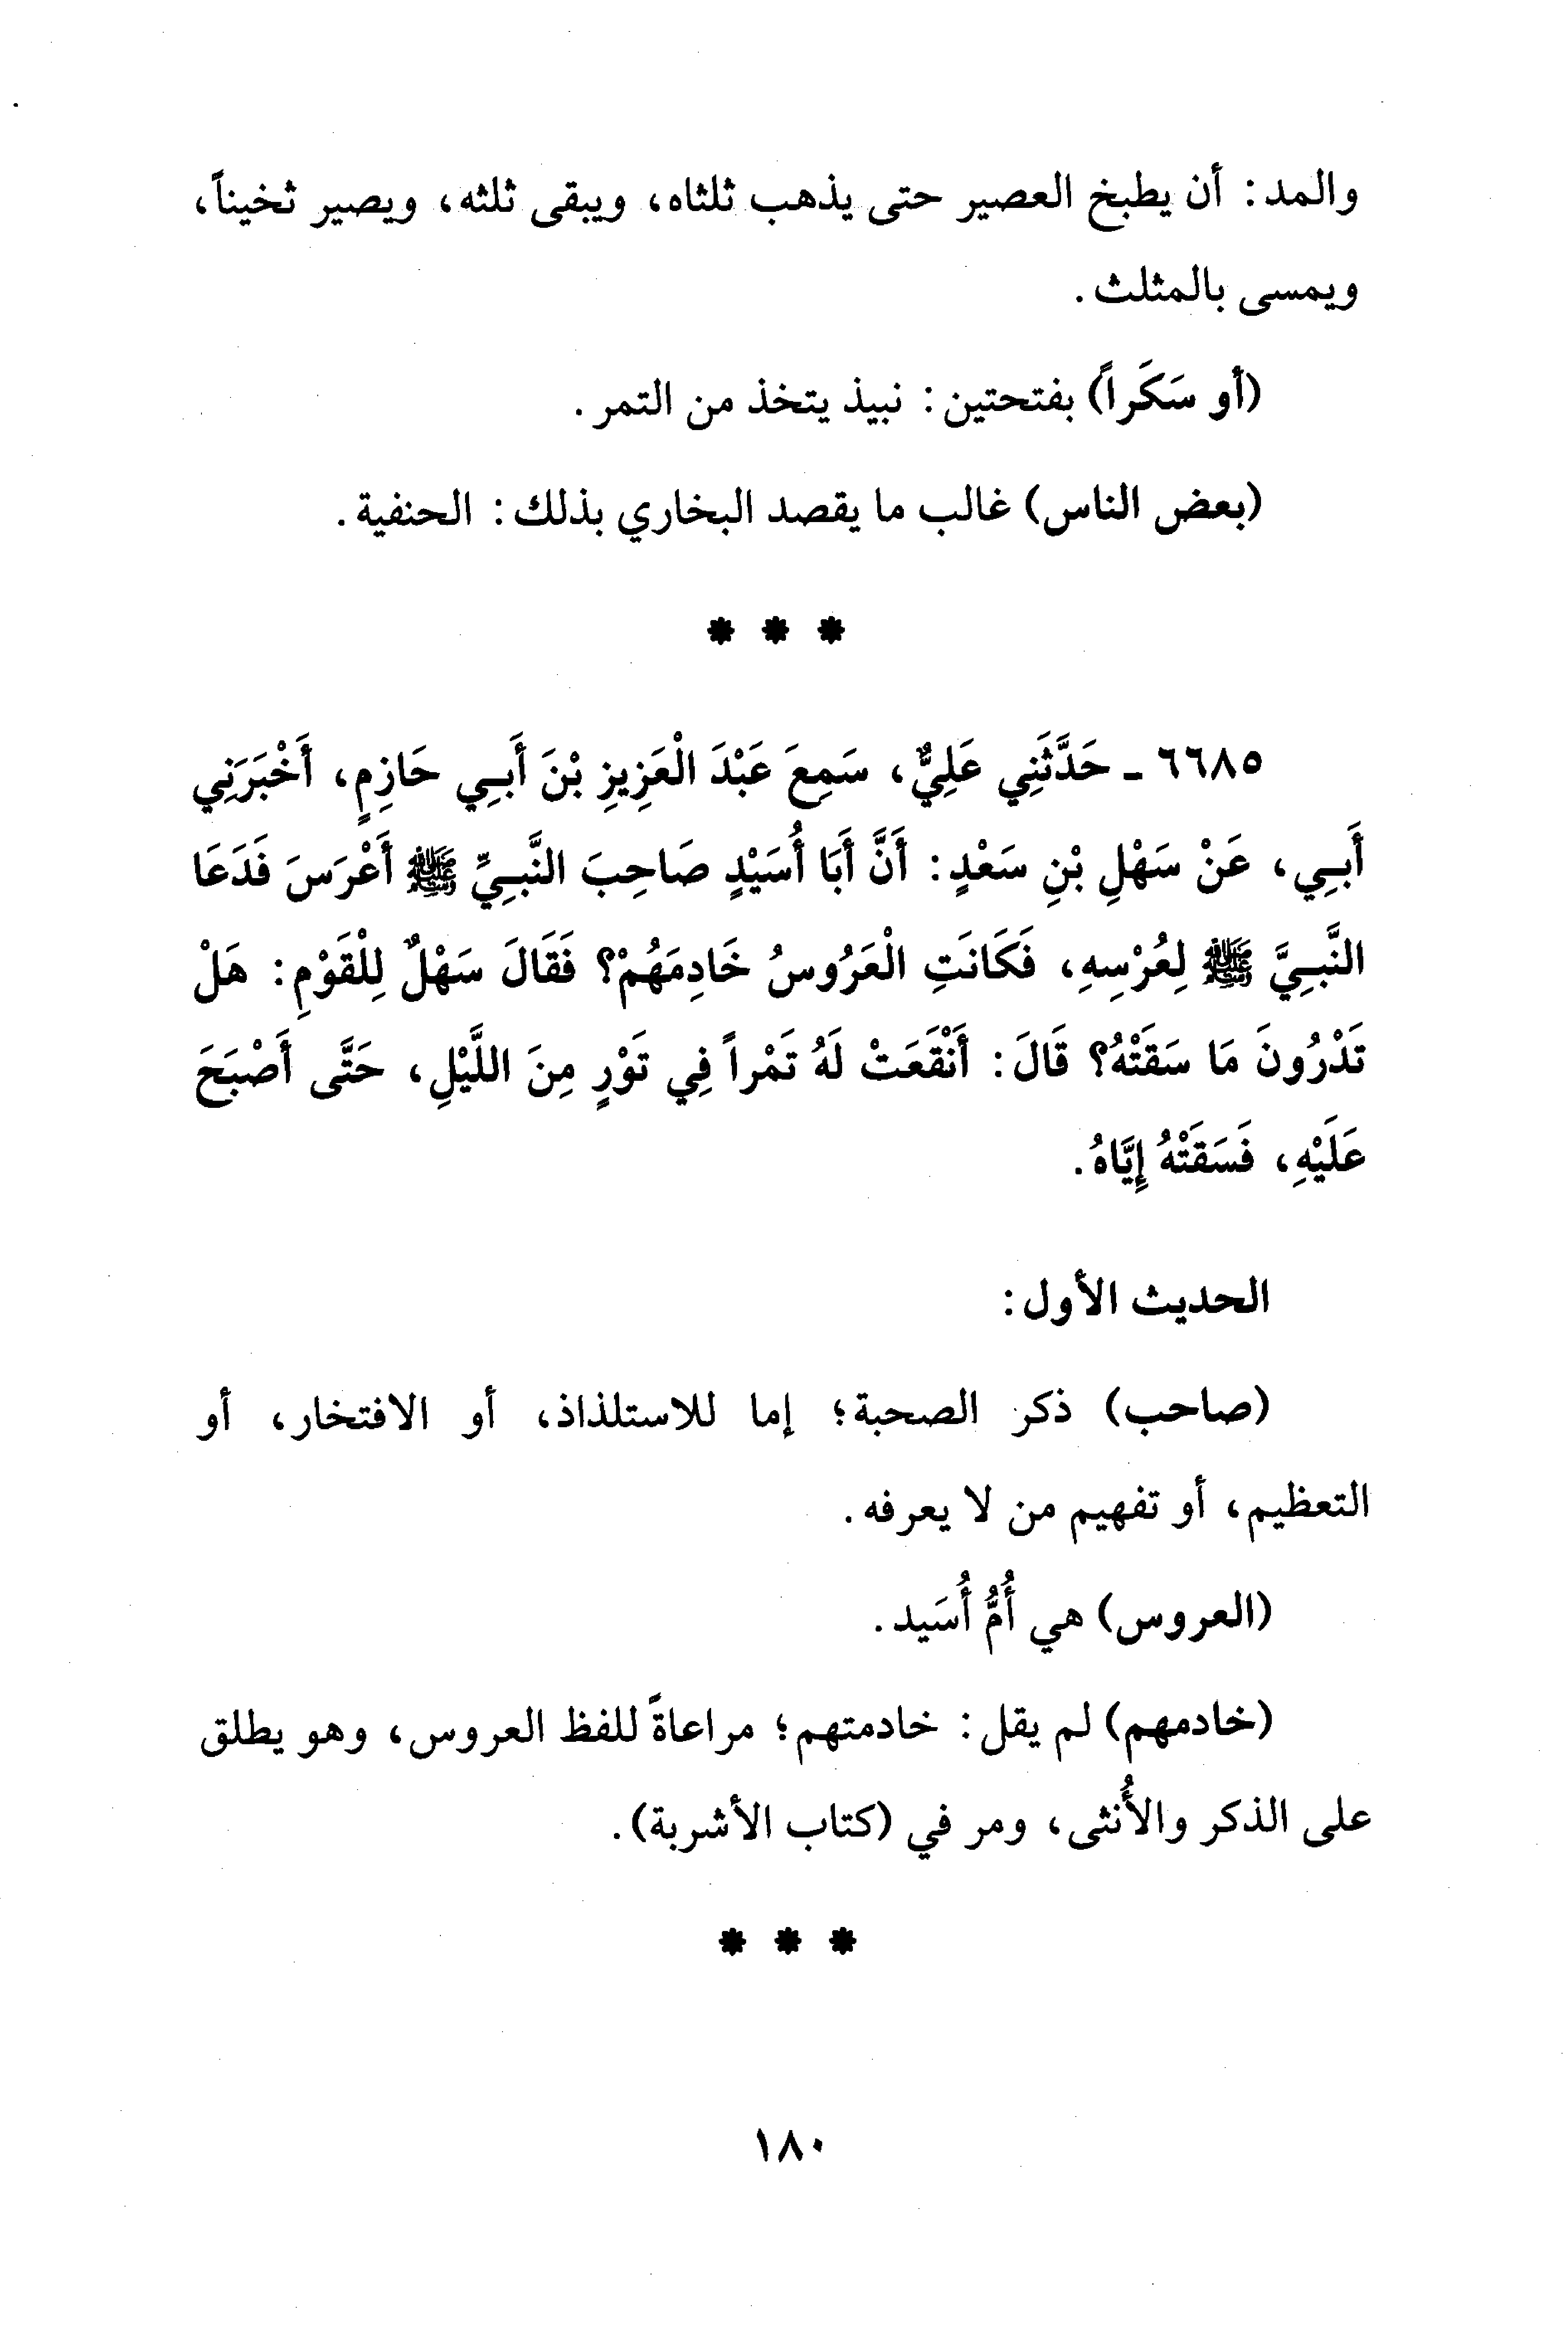 والمد: أن يطبخ العصير حتى يذهب ثلثاه، ويبقى ثلثه، ويصير ثخيناً،
ويمسى بالمثلث.
(أو سَكَراً) بفتحتين: نبيذ يتخذ من التمر.
(بعض الناس) غالب ما يقصد البخاري بذلك: الحنفية.
* * *
٦٦٨٥ ـ حَدَّثَنِي عَلِيٌّ، سَمِعَ عَبْدَ الْعَزِيزِ بْنَ أَبِي حَازِمٍ، أَخْبَرَنِي
أَبِي، عَنْ سَهْلِ بْنِ سَعْدٍ: أَنَّ أَبَا أُسَيْدٍ صَاحِبَ النَّبِيِّ ﷺ أَعْرَسَ فَدَعَا
النَّبِيَّ ﷺ لِعُرْسِهِ، فَكَانَتِ الْعَرُوسُ خَادِمَهُمْ؟ فَقَالَ سَهْلٌ لِلْقَوْمِ: هَلْ
تَدْرُونَ مَا سَقَتْهُ؟ قَالَ: أَنْقَعَتْ لَهُ تَمْراً فِي تَوْرٍ مِنَ اللَّيْلِ، حَتَّى أَصْبَحَ
عَلَيْهِ، فَسَقَتْهُ إِيَّاهُ.
الحديث الأول:
(صاحب) ذكر الصحبة؛ إما للاستلذاذ، أو الافتخار، أو
التعظيم، أو تفهيم من لا يعرفه.
(العروس) هي أُمُّ أُسَيد.
(خادمهم) لم يقل: خادمتهم؛ مراعاةً للفظ العروس، وهو يطلق
على الذكر والأُنثى، ومر في (كتاب الأشربة).
* * *
١٨٠